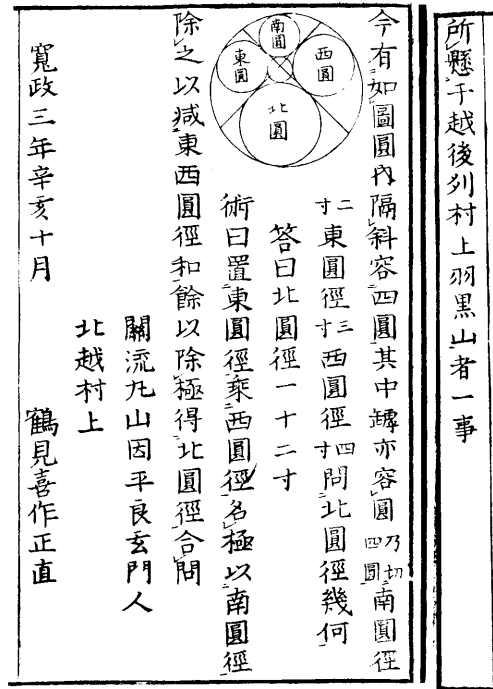 所懸于越後列村上羽黒山者一事
今有如圖圓内隔斜容四圓其中罅亦容圓乃切四圓南圓徑
二寸東圓徑三寸西圓徑四寸問北圓徑幾何
答曰北圓徑一十二寸
術曰置東圓徑乗西圓徑名極以南圓徑
南圓
西圓
東圓
北圓
除之以減東西圓徑和餘以除極得北圓徑合問
關流丸山因平良玄門人
北越村上
寛政三年辛亥十月 鶴見喜作正直